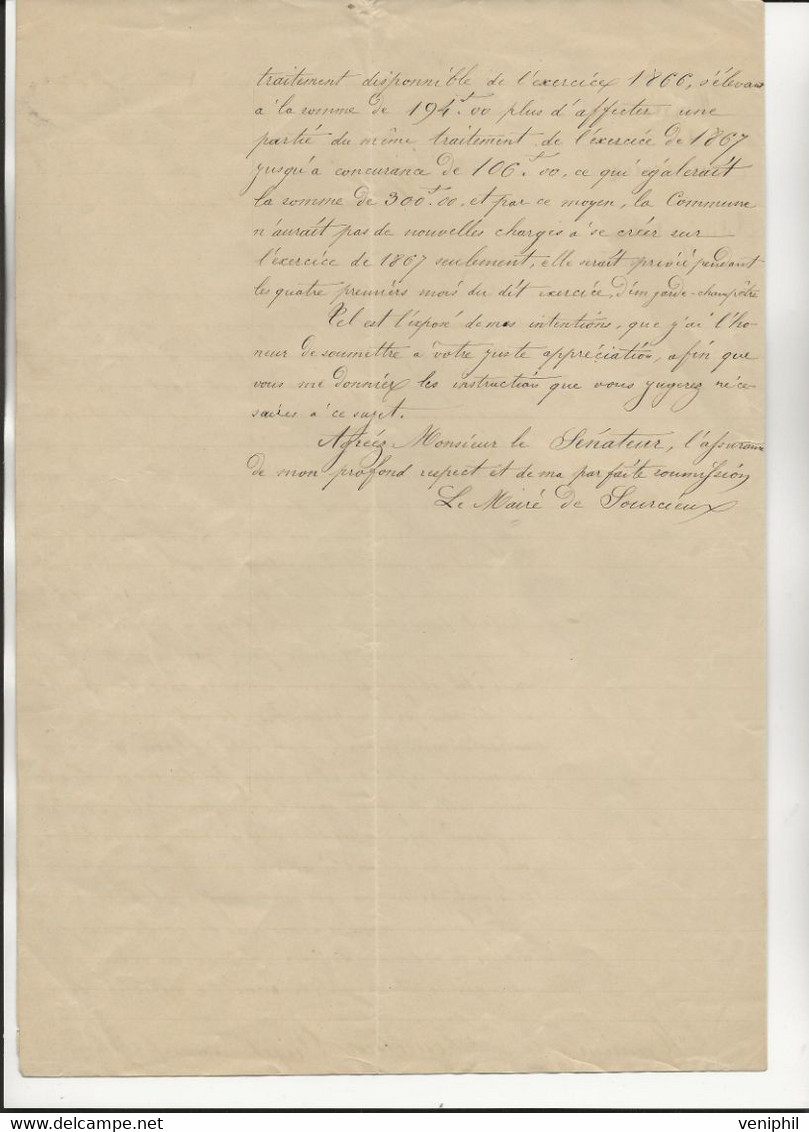 traitement disponnible de l'exercicex 1866, s'élevan
à la somme de 194f.00 plus d'affecter une
partié du même traitement de l'éxercicé de 1867
jusqu'à concurance de 106f.00, ce qui égalerait
la somme de 300f.00, et par ce moyen, la Commune
n'aurait pas de nouvelles charges à se créer sur
l'éxercicé de 1867 seulement, elle serait privée pendant
les quatre premiers mois du dit exercicé, d'un garde-champêtre
Tel est l'éxposé de mes intentions, que j'ai l'ho-
neur de soumettre à votre juste appréciation, afin que
vous me donniex les instruction que vous jugerez néces
saires à ce sujet.
Agréez Monsieur le Sénateur, l'assurance
de mon profond respect et de ma parfaite soumission
Le Mairé de Sourcieux
veniphil